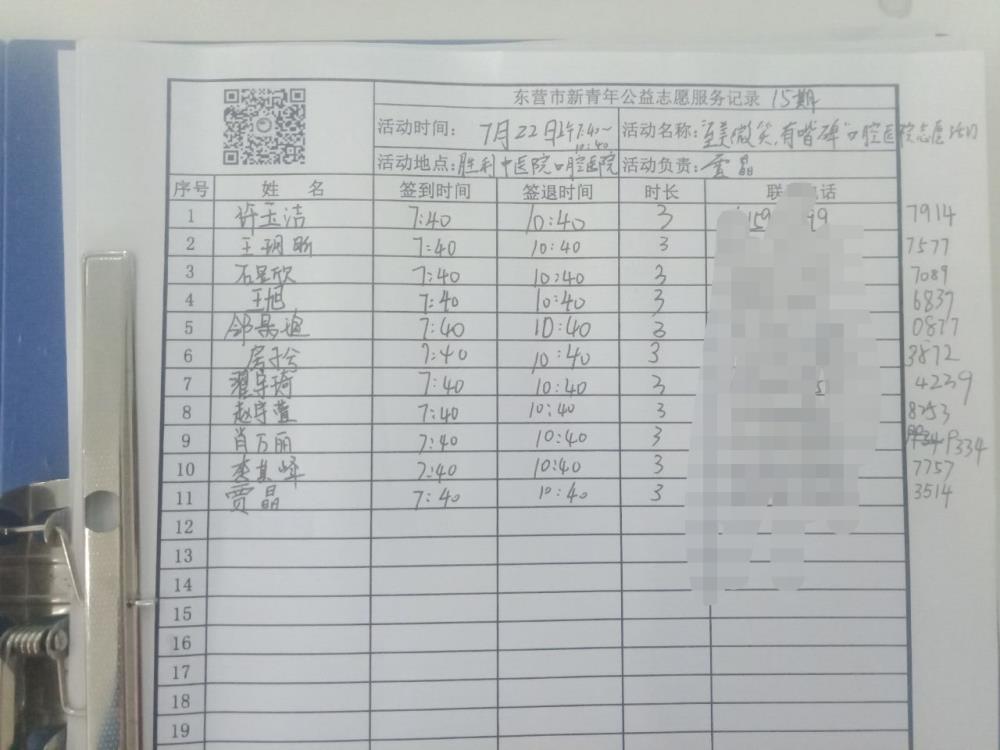 东营市新青年公益志愿服务记录 15期
活动时间: 7月22日上午7:40~10:40 活动名称: 美微笑,有"啮"口腔医院志愿活动
活动地点: 胜利中医院口腔医院 活动负责: 贾晶
序号 姓 名 签到时间 签退时间 时长 联 电话
1 许玉洁 7:40 10:40 3 159 99 7914
2 王玥昕 7:40 10:40 3 7577
3 石昱欣 7:40 10:40 3 7089
4 王旭 7:40 10:40 3 6837
5 7:40 10:40 3 0877
6 房子兮 7:40 10:40 3 3872
7 翟宇琦 7:40 10:40 3 4239
8 赵宇萱 7:40 10:40 3 8253
9 肖万丽 7:40 10:40 3 9334
10 李其峰 7:40 10:40 3 7757
11 贾晶 7:40 10:40 3 3514
12
13
14
15
16
17
18
19